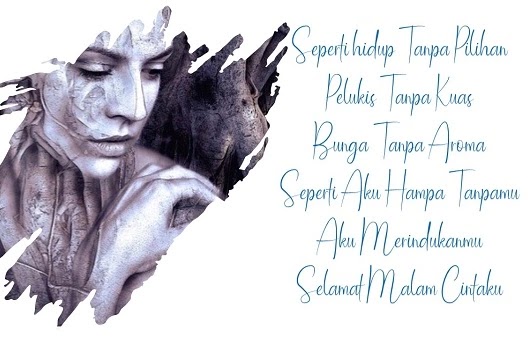 Seperti hidup Tanpa Pilihan
Pelukis Tanpa Kuas
Bunga Tanpa Aroma
Seperti Aku Hampa Tanpamu
Aku Merindukanmu
Selamat Malam Cintaku